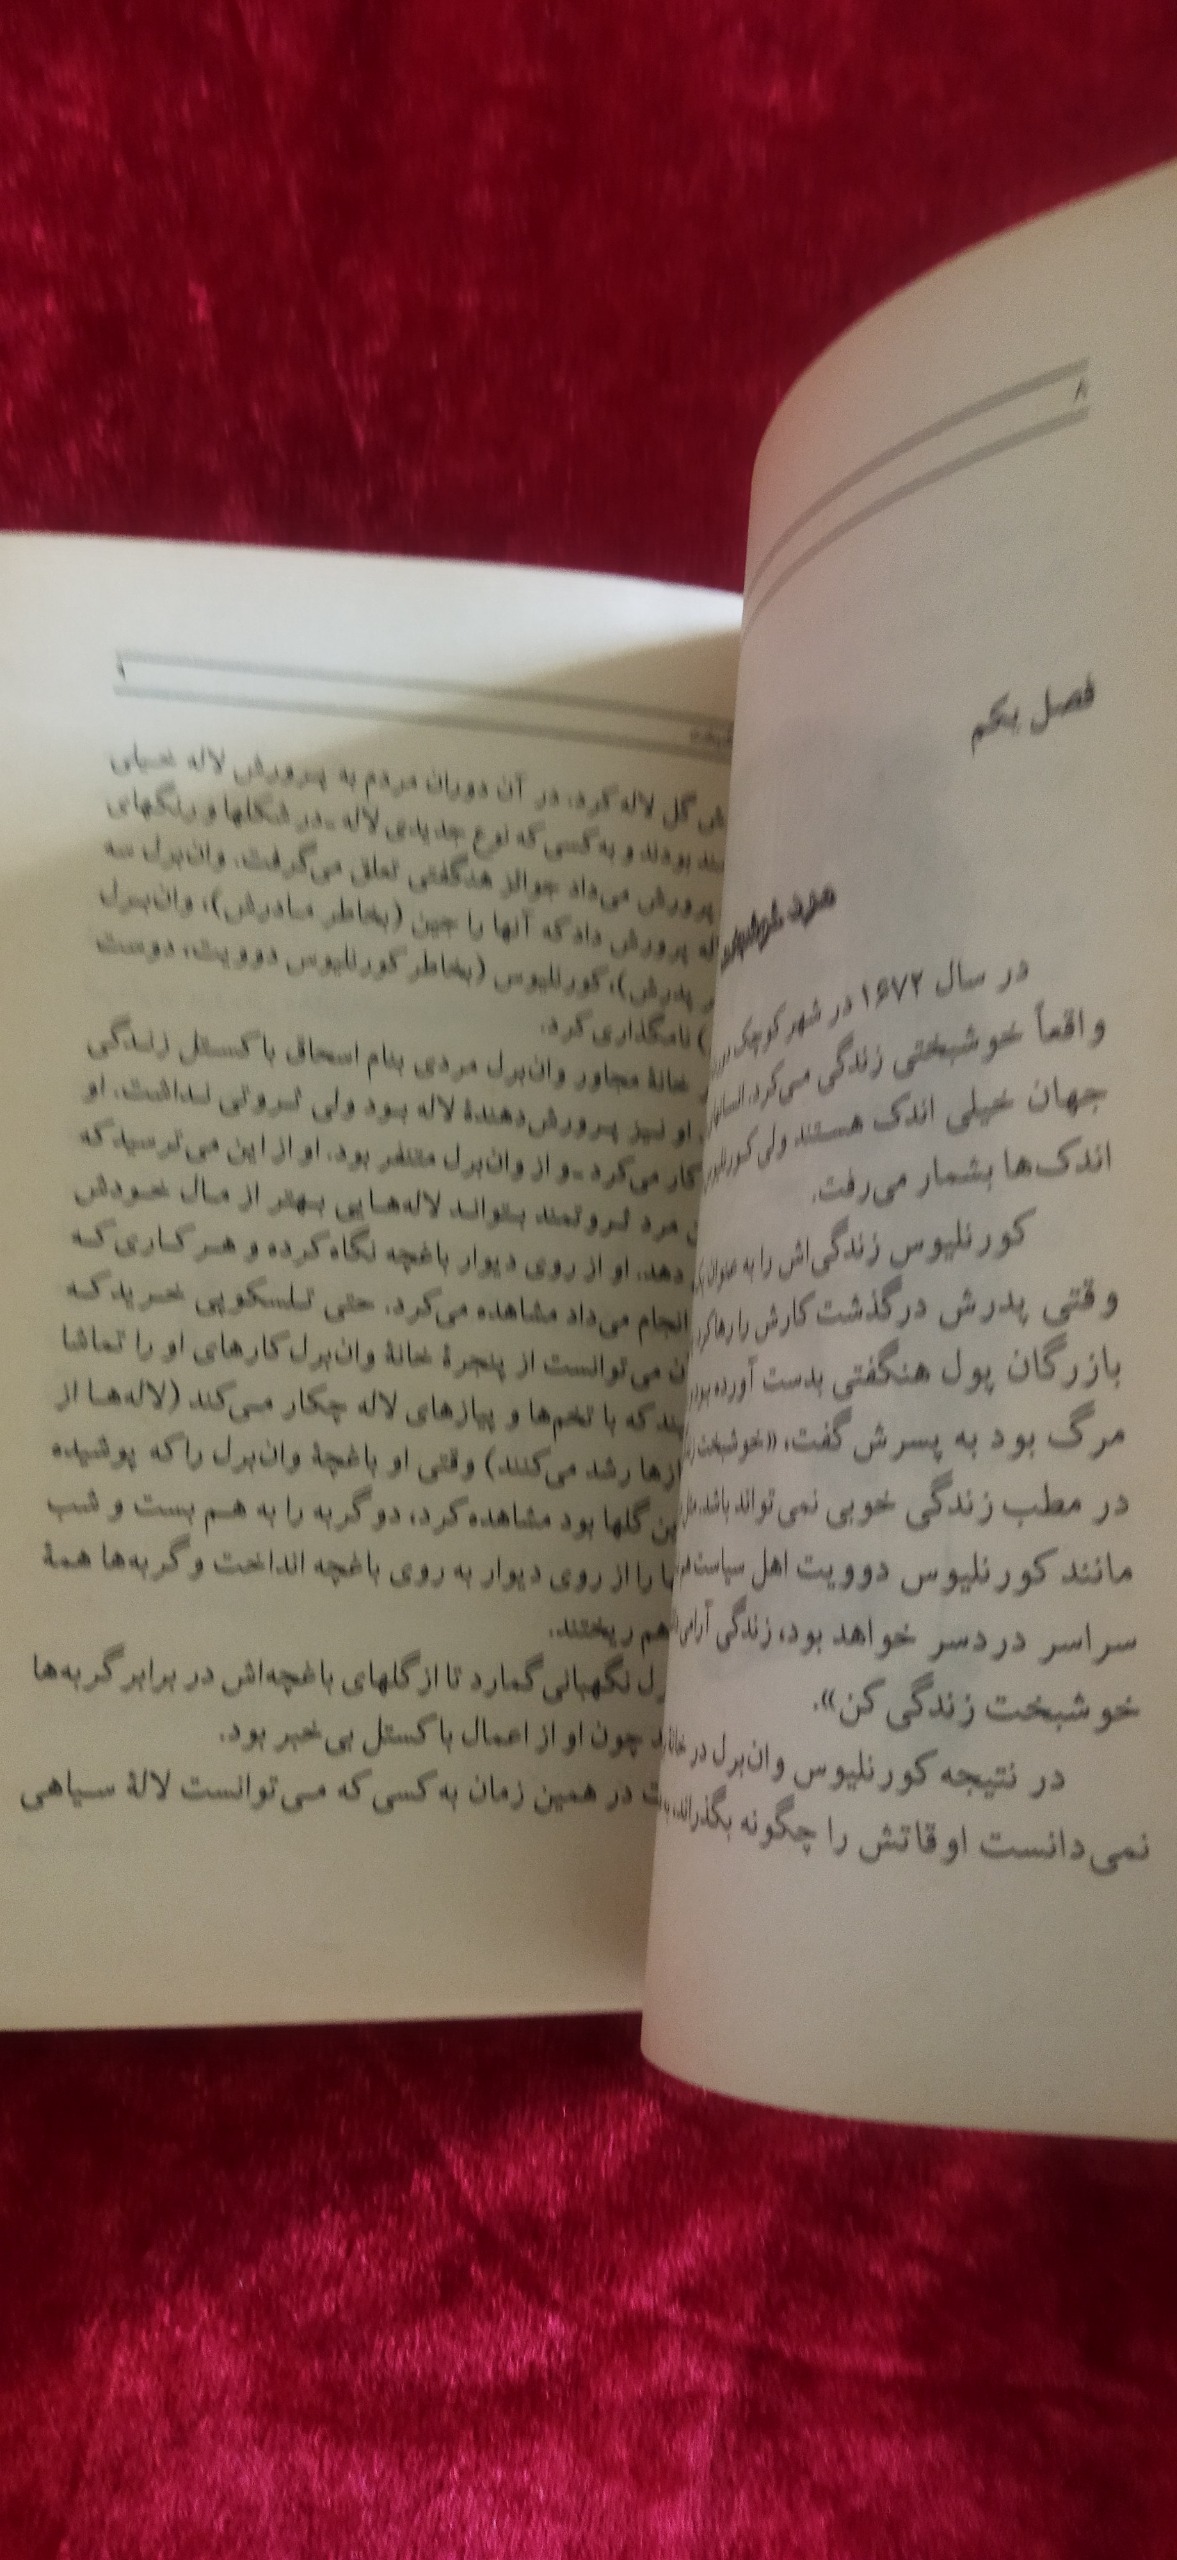 ۸
فصل یکم
مرد خوشبخت
در سال ۱۶۷۲ در شهر کوچک
واقعاً خوشبختی زندگی می‌کرد.
جهان خیلی اندک هستند ولی کورنلیوس
اندک‌ها بشمار می‌رفت.
کورنلیوس زندگی‌اش را به عنوان
وقتی پدرش درگذشت کارش را رها کرد
بازرگان پول هنگفتی بدست آورده بود
مرگ بود به پسرش گفت، «خوشبخت
در مطب زندگی خوبی نمی‌تواند باشد.
مانند کورنلیوس دوویت اهل سیاست
سراسر دردسر خواهد بود، زندگی آرامی
خوشبخت زندگی کن».
در نتیجه کورنلیوس وان‌برل در خانه
نمی‌دانست اوقاتش را چگونه بگذراند،
۹
گل لاله کرد. در آن دوران مردم به پرورش لاله خیلی
بودند و به کسی که نوع جدیدی لاله ـ در شکلها و رنگهای
پرورش می‌داد جوائز هنگفتی تعلق می‌گرفت. وان‌برل سه
پرورش داد که آنها را جین (بخاطر مادرش)، وان‌برل
پدرش)، کورنلیوس (بخاطر کورنلیوس دوویت، دوست
) نامگذاری کرد.
خانهٔ مجاور وان‌برل مردی بنام اسحاق باکستل زندگی
او نیز پرورش‌دهندهٔ لاله بود ولی ثروتی نداشت. او
کار می‌کرد ـ و از وان‌برل متنفر بود. او از این می‌ترسید که
مرد ثروتمند بتواند لاله‌هایی بهتر از مال خودش
دهد. او از روی دیوار باغچه نگاه کرده و هر کاری که
انجام می‌داد مشاهده می‌کرد. حتی تلسکوپی خرید که
می‌توانست از پنجرهٔ خانهٔ وان‌برل کارهای او را تماشا
که با تخم‌ها و پیازهای لاله چکار می‌کند (لاله‌ها از
رشد می‌کنند) وقتی او باغچهٔ وان‌برل را که پوشیده
گلها بود مشاهده کرد، دو گربه را به هم بست و شب
را از روی دیوار به روی باغچه انداخت و گربه‌ها همهٔ
هم ریختند.
نگهبانی گمارد تا از گلهای باغچه‌اش در برابر گربه‌ها
چون او از اعمال باکستل بی‌خبر بود.
در همین زمان به کسی که می‌توانست لالهٔ سیاهی